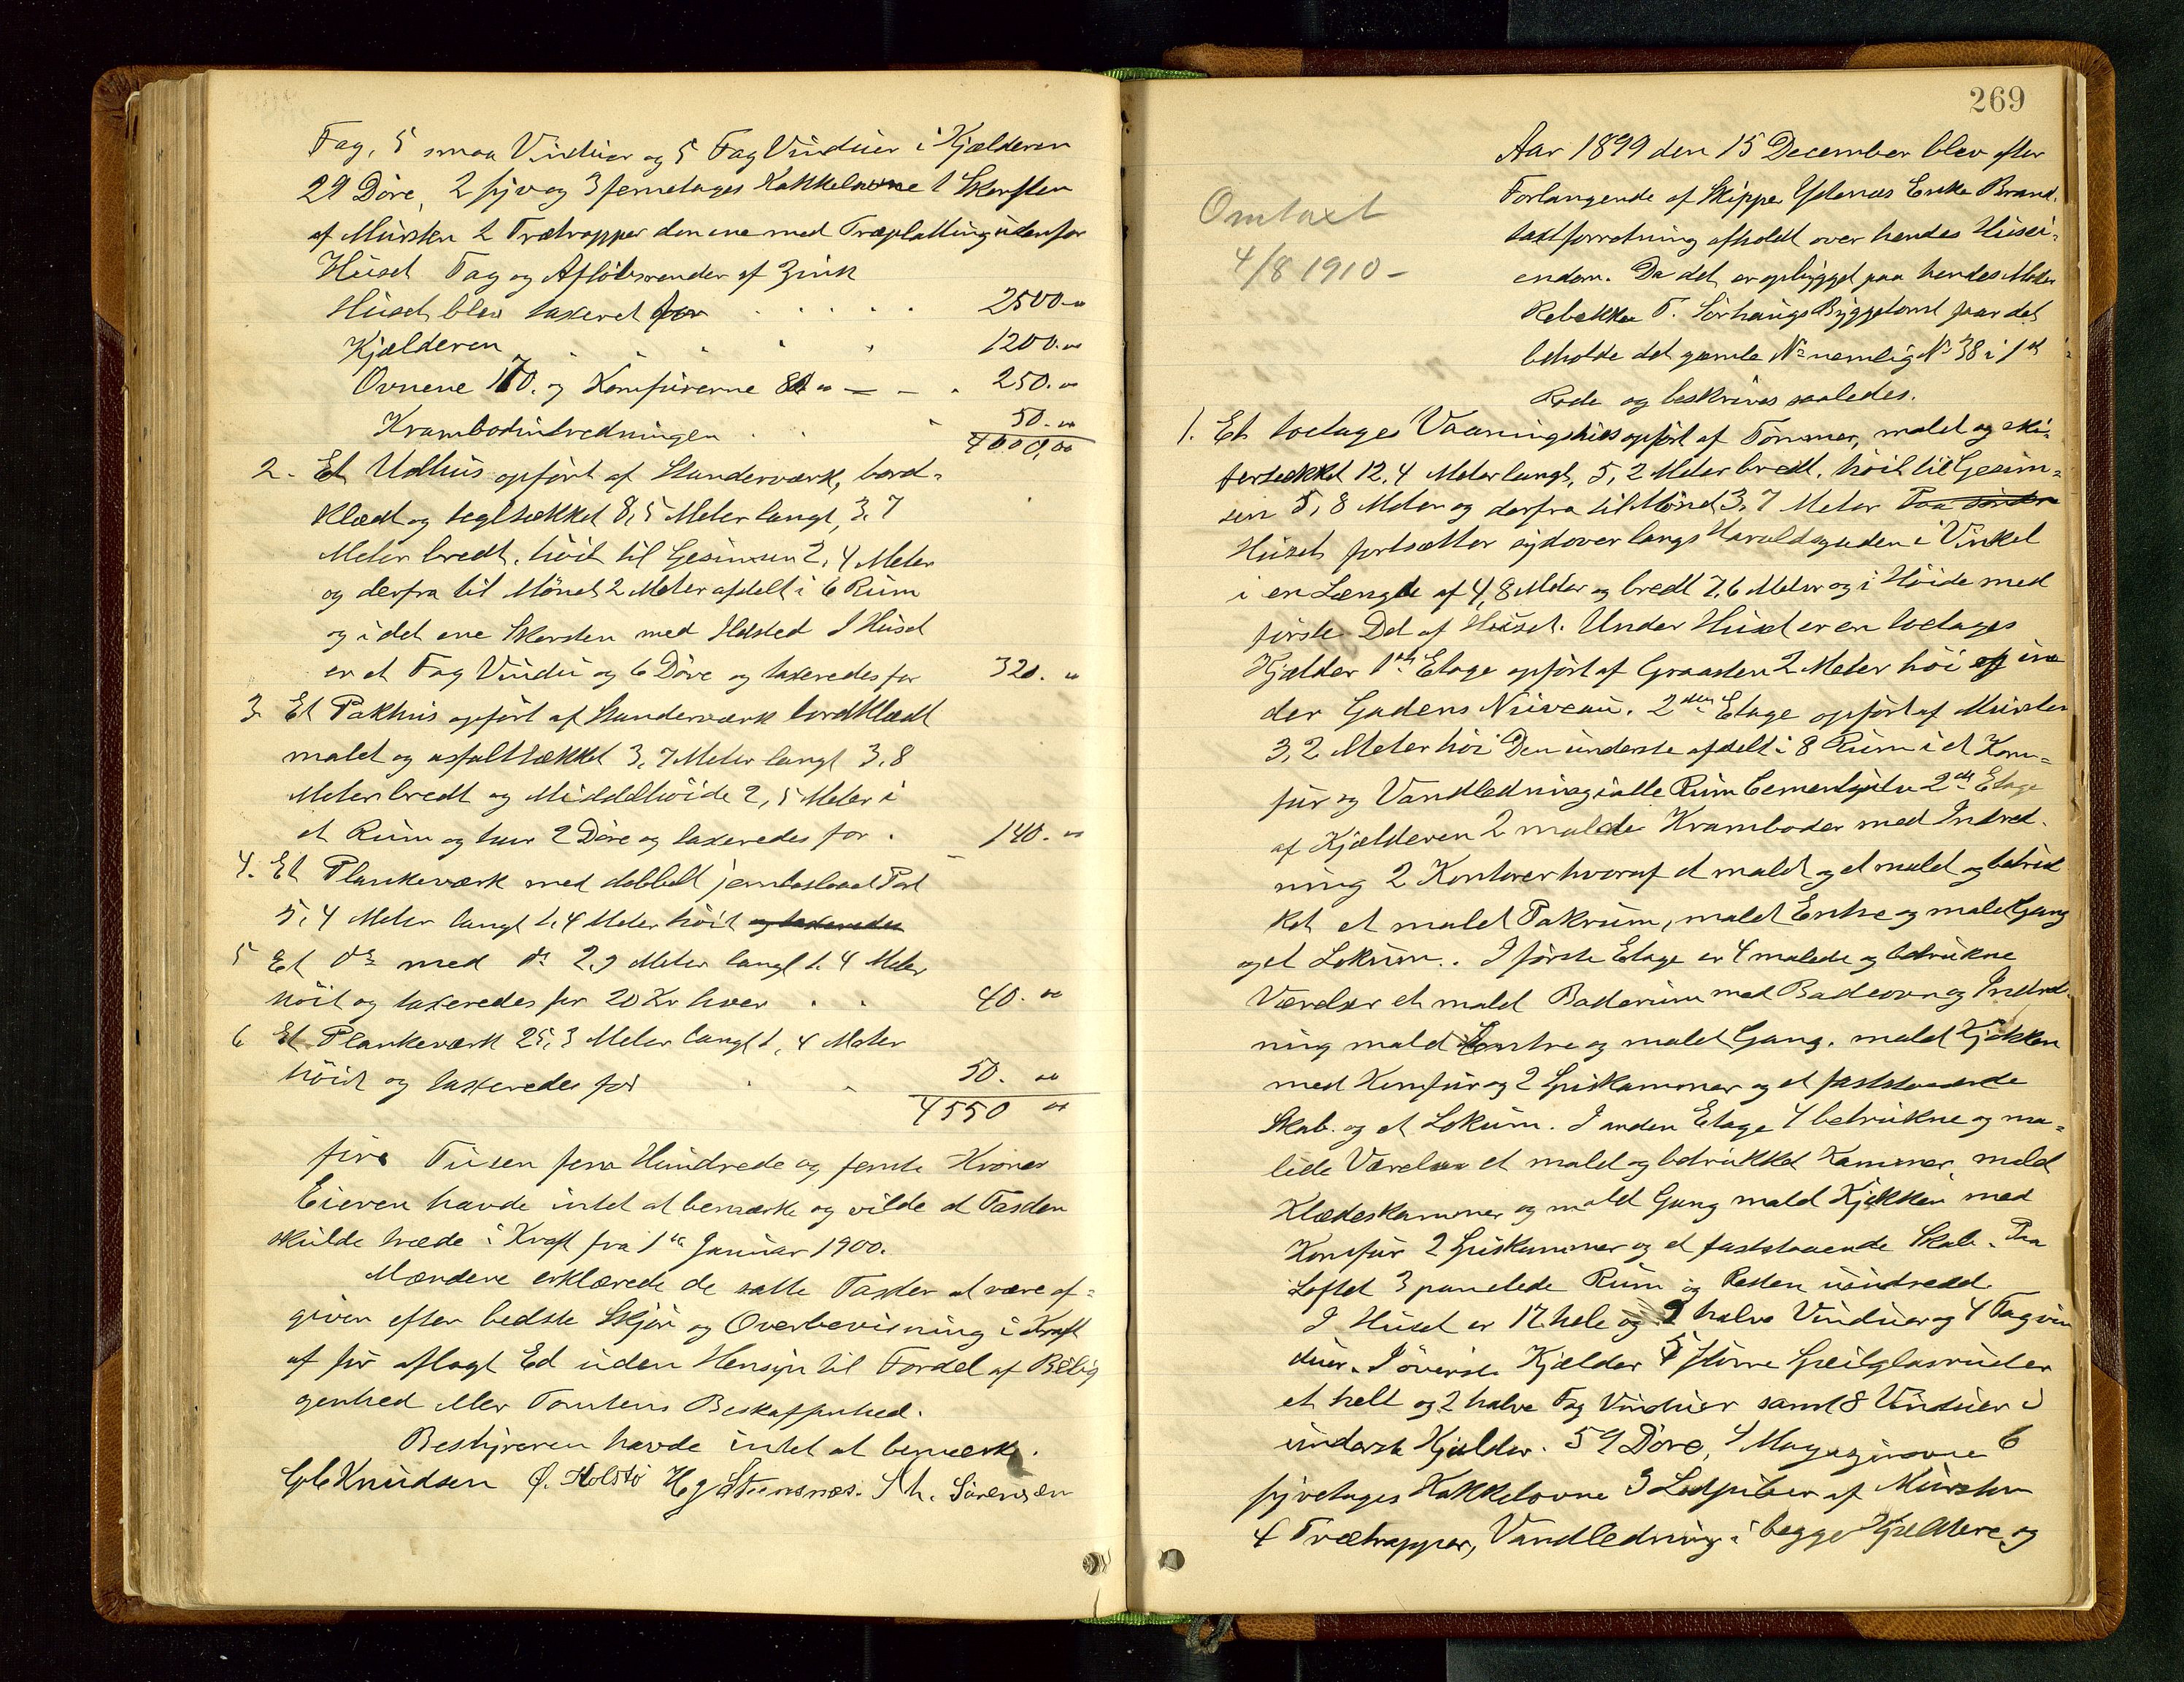 Fag, 5 smaa Vinduer og 5 Fag Vinduer i Kjælderen
29 Döre, 2 fyr og 3 femetages Kakkelovne 1 Skorsten
af Mursten 2 Trætrapper den ene med Træplatting udenfor
Huset Tag og Aflöbsrender af Zink
Huset blev taxeret for 2500.00
Kjælderen 1200.00
Ovnene 170. og Komfurerne 80 00 250.00
Krambodindredningen 50.00
4000,00
2. Et Udhus opfört af Standerværk, bord-
klædt og tegltækket 8,5 Meter langt, 3,7
Meter bredt, höit til Gesimsen 2,4 Meter
og derfra til Mönet 2 Meter afdelt i 6 Rum
og i det ene Skorsten med Ildsted I Huset
er et Fag Vindu og 6 Döre og taxeredes for 320. 00
3. Et Pakhus opfört af Standerværk bordklædt
malet og asfalttækket 3,7 Meter langt 3,8
Meter bredt og Middelhöide 2,5 Meter i
et Rum og har 2 Döre og taxeredes for 140. 00
4. Et Plankeværk med dobbelt jernbeslaaet Port
5,4 Meter langt 1,4 Meter höit og taxeredes
5 Et do med do 2,9 Meter langt 1,4 Meter
höit og taxeredes for 20 Kr hver 40. 00
6 Et Plankeværk 25,3 Meter langt 1,4 Meter
höit og taxeredes for 50. 00
4550 00
fire Tusen fem Hundrede og femti Kroner
Eieren havde intet at bemærke og vilde at Taxten
skulde træde i Kraft fra 1ste Januar 1900.
Mændene erklærede de satte Taxter at være af-
given efter bedste Skjön og Overbevisning i Kraft
af för aflagt Ed uden Hensyn til Fordel af Belig
genhed eller Tomtens Beskaffenhed.
Bestyreren havde intet at bemærke.
Knudsen Ø. Holstö H J Steensnæs. Th. Sörensen
269
Omtaxt
4/8 1910-
Aar 1899 den 15 December blev efter
Forlangende af Skipper Enke Brand-
taxtforretning afholdt over hendes Husei-
endom. Da det er opbygget paa hendes Moder
Rebekka T. Sörhaugs Byggetomt faar det
beholde det gamle No nemlig No 38 i 1ste
Rode og beskrives saaledes.
1. Et toetages Vaaningshus opfört af Tömmer, malet og ski-
fertækket 12,4 Meter langt, 5,2 Meter bredt, höit til Gesim-
sen 5,8 Meter og derfra til Mönet 3,7 Meter Paa söndre
Huset fortsætter sydover langs Haraldsgaden i Vinkel
i en Længde af 4,8 Meter og bredt 7,6 Meter og i Höide med
förste Del af Huset. Under Huset er en toetages
Kjælder 1ste Etage opfört af Graasten 2 Meter höi un
der Gadens Niveau. 2den Etage opfört af Mursten
3,2 Meter höi Den underste afdelt i 8 Rum i et Kom-
fur og Vandledning i alle Rum Cementgulv 2den Etage
af Kjælderen 2 malede Kramboder med Indred-
ning 2 Kontorer hvoraf et malet og et malet og betræk
ket et malet Pakrum, malet Entre og malet Gang
og et Lokum. I förste Etage er 4 malede og betrukne
Værelser et malet Baderum med Badeovn og Indred-
ning malet Entre og malet Gang, malet Kjökken
med Komfur og 2 Spiskammer og et faststaaende
Skab og et Lokum. I anden Etage 4 betrukne og ma-
lede Værelser et malet og betrukket Kammer, malet
Klædeskammer og malet Gang malet Kjökken med
Komfur 2 Spiskammer og et faststaaende Skab. Paa
Loftet 3 panelede Rum og Resten uindredet.
I Huset er 17 hele og 9 halve Vinduer og 4 Tagvin
duer. I överste Kjælder 5 större Speilglasruder
et helt og 2 halve Fag Vinduer samt 8 Vinduer i
underste Kjælder. 59 Döre, 4 Magasinovne 6
fyretages Kakkelovne 3 Ledpiber af Mursten
4 Trætrapper, Vandledning i begge Kjældere og